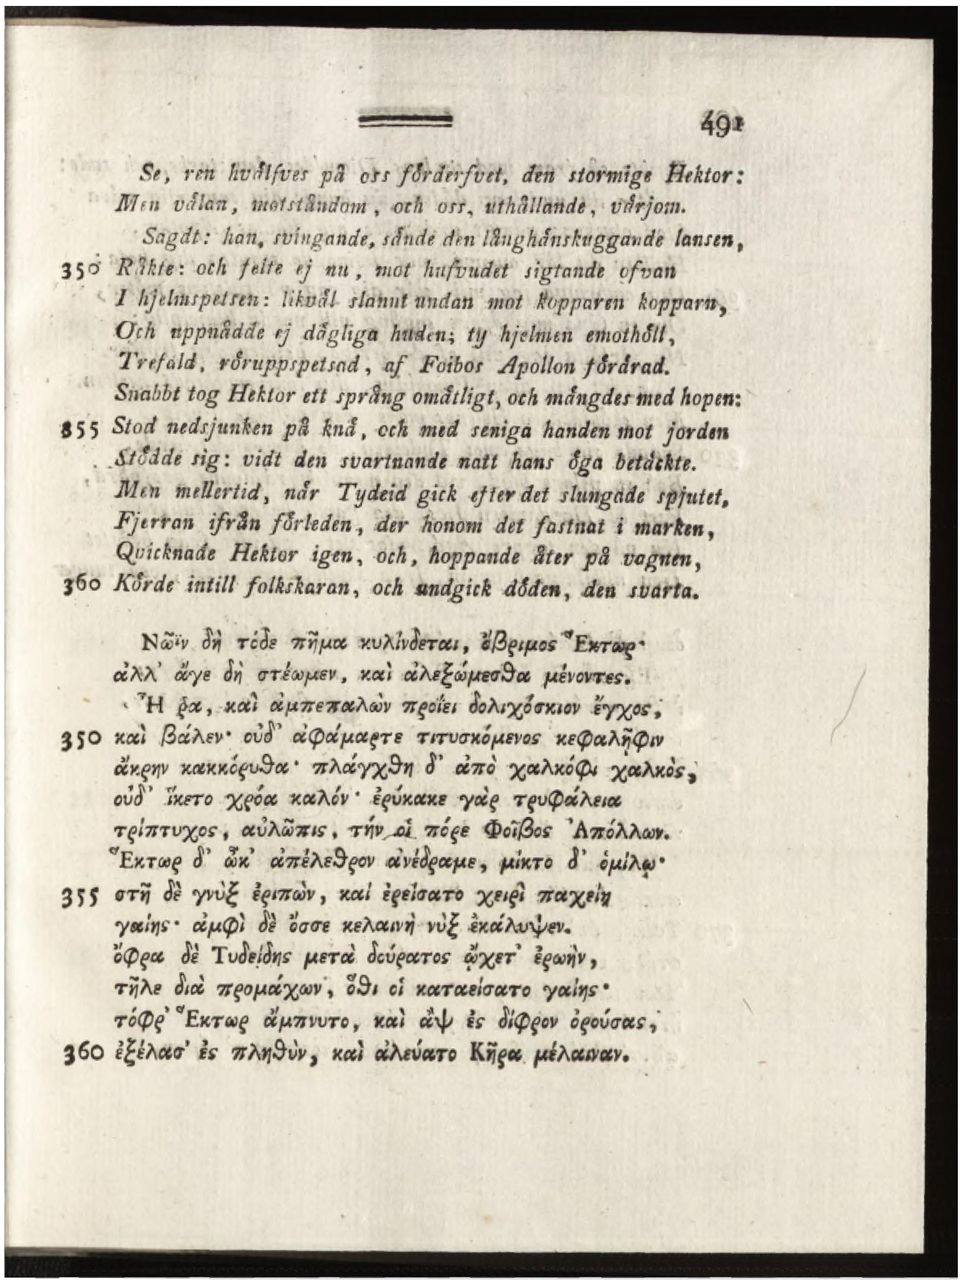 491
Se, ren hvålfves på oss förderfvet, den stormige Hektor:
Men välan, motståndom, och oss, uthållande, vårjom.
Sagdt: han, svingande, sände den långhånskuggande lansen,
350 Råkte: och felte ej nu, mot hufvudet sigtande ofvan
I hjelmspetsen: likväl slannt undan mot kopparen kopparn,
Och uppnådde ej dågliga huden; ty hjelmen emothöll,
Trefald, röruppspetsad, af Foibos Apollon förårad.
Snabbt tog Hektor ett språng omåtligt, och mångdes med hopen:
355 Stod nedsjunken på knå, och med seniga handen mot jorden
Stödde sig: vidt den svartnande natt hans öga betåckte.
Men mellertid, når Tydeid gick efter det slungade spjutet,
Fjerran ifrån förleden, der honom det fastnat i marken,
Quicknade Hektor igen, och, hoppande åter på vagnen,
360 Körde intill folkskaran, och undgick döden, den svarta.
Νῶϊν δὴ τόδε πῆμα κυλίνδεται, ὄβριμος Ἕκτωρ·
ἀλλ' ἄγε δὴ στέωμεν, καὶ ἀλεξώμεσθα μένοντες.
Ἦ ῥα, καὶ ἀμπεπαλὼν προΐει δολιχόσκιον ἔγχος,
350 καὶ βάλεν· οὐδ' ἀφάμαρτε τιτυσκόμενος κεφαλῆφιν
ἄκρην κακκόρυθα· πλάγχθη δ' ἀπὸ χαλκόφι χαλκὸς,
οὐδ' ἵκετο χρόα καλόν· ἐρύκακε γὰρ τρυφάλεια
τρίπτυχος, αὐλῶπις, τήν οἱ πόρε Φοῖβος Ἀπόλλων.
Ἕκτωρ δ' ὦκ' ἀπέλεθρον ἀνέδραμε, μίκτο δ' ὁμίλῳ·
355 στῆ δὲ γνὺξ ἐριπὼν, καὶ ἐρείσατο χειρὶ παχείῃ
γαίης· ἀμφὶ δὲ ὄσσε κελαινὴ νὺξ ἐκάλυψεν.
ὄφρα δὲ Τυδείδης μετὰ δούρατος ᾤχετ' ἐρωὴν,
τῆλε διὰ προμάχων, ὅθι οἱ καταείσατο γαίης·
τόφρ' Ἕκτωρ ἄμπνυτο, καὶ ἂψ ἐς δίφρον ὀρούσας,
360 ἐξέλασ' ἐς πληθὺν, καὶ ἀλεύατο Κῆρα μέλαιναν.